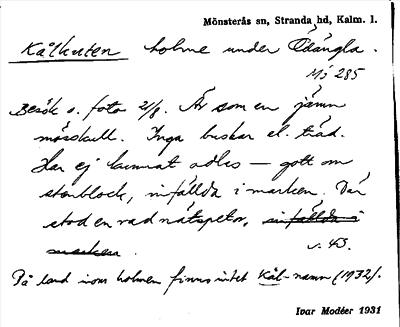 Mönsterås sn, Stranda hd, Kalm. l.
Kålkuten holme under Ödängla.
Mö 285
Besök o. foto 21/8. Är som en jämn
mosskull. Inga buskar el. träd.
Har ej kunnat odlas — gott om
stenblock, infällda i marken. Där
stod en rad nätspelor, infällda i
marken.
s. 43.
På land inom holmen finns intet Kål-namn (1932).
Ivar Modéer 1931